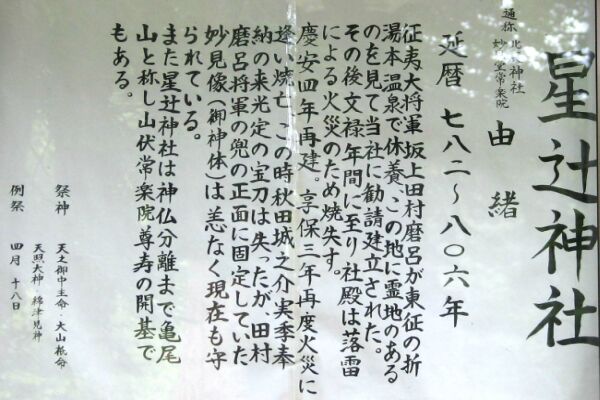 星辻神社
通称 北辰神社
妙見堂常楽院
由緒
延暦 七八二〜八〇六年
征夷大将軍坂上田村磨呂が東征の折
湯本温泉で休養、この地に霊地のある
のを見て当社に勧請建立された。
その後文禄年間に至り社殿は落雷
による火災のため焼失す。
慶安四年再建。享保三年再度火災に
逢い焼亡、この時秋田城之介実季奉
納の来光定の宝刀は失ったが、田村
磨呂将軍の兜の正面に固定していた
妙見像(御神体)は恙なく現在も守
られている。
また星辻神社は神仏分離まで亀尾
山と称し山伏常楽院尊寿の開基で
もある。
祭神 天之御中主命・大山祇命
天照大神・綿津見神
例祭 四月十八日